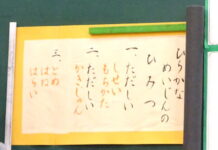 ひらがな
めいじんの
ひみつ
一、ただしい
しせい
もちかた
二、ただしい
かきじゅん
三、とめ
はね
はらい